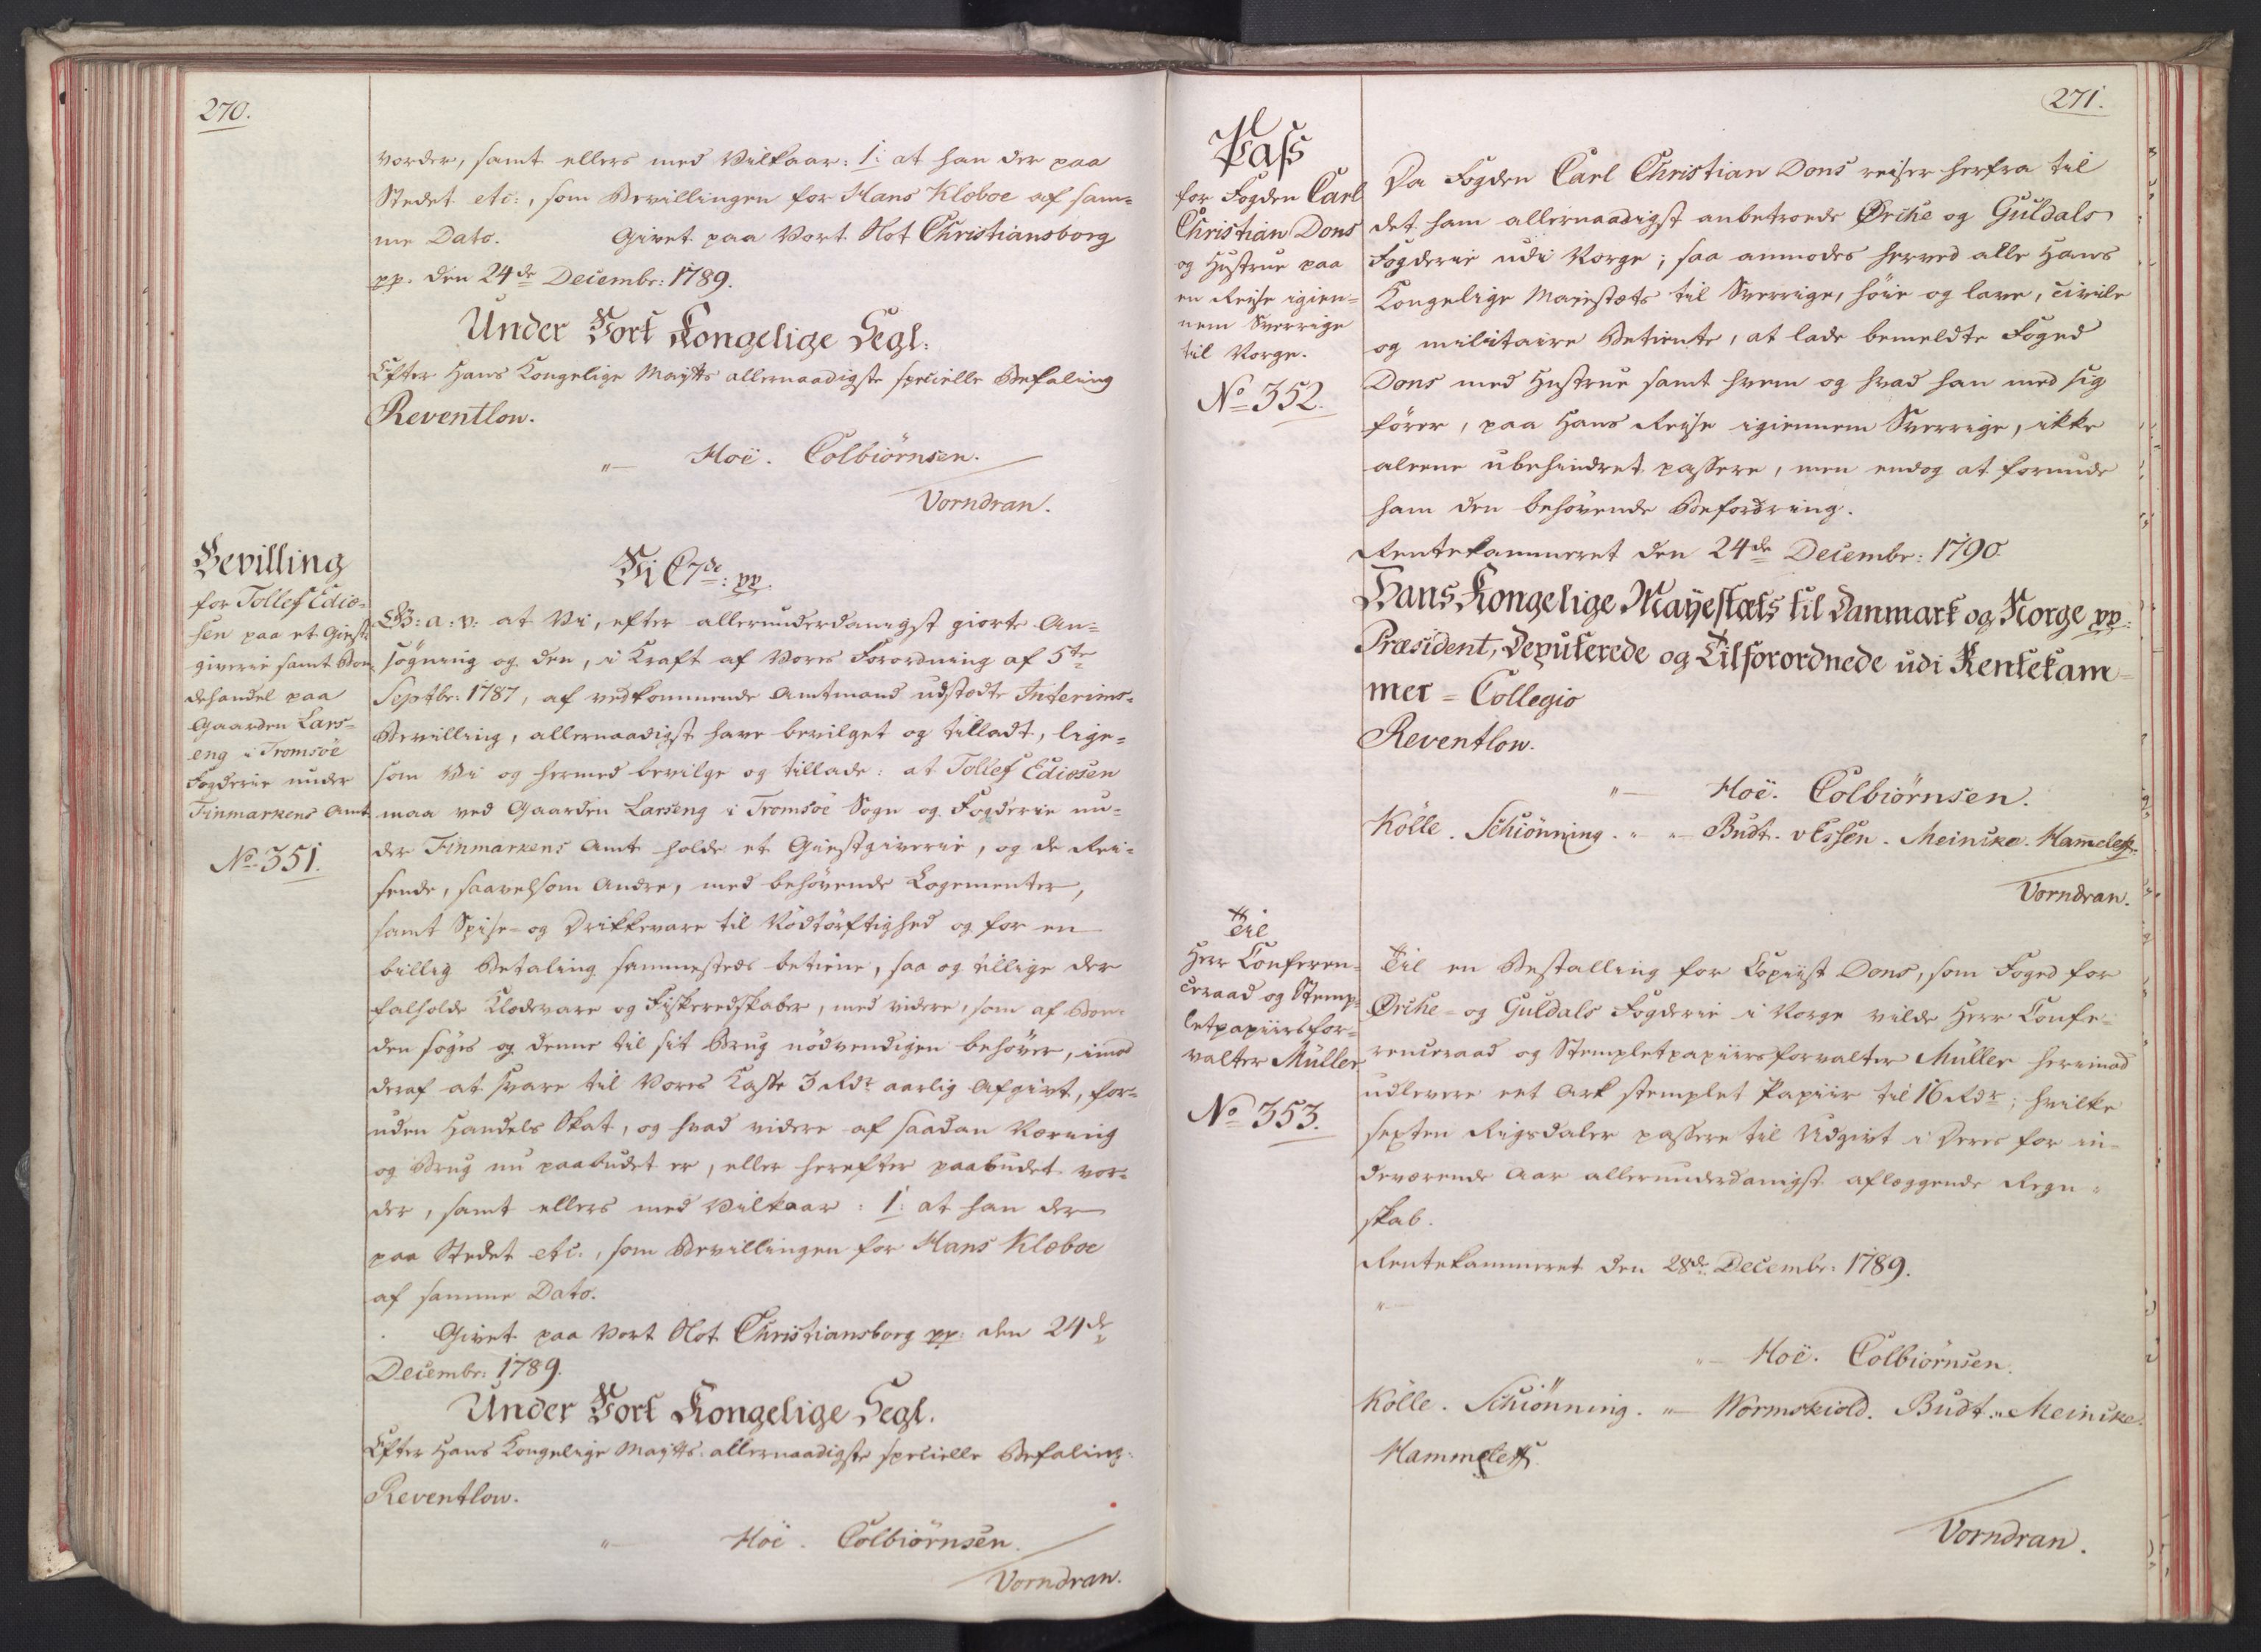 270.
vorder, samt ellers med Vilkaar: 1: at han der paa
Stedet etc:, som Bevillingen for Hans Klæboe af sam=
me Dato. Givet paa Vort Slot Christiansborg
pp. den 24de Decembr: 1789.
Under Vort Kongelige Segl.
Efter Hans Kongelige Maytts allernaadigste specielle Befaling
Reventlow.
"— Hoë. Colbiörnsen.
Vorndran.
Bevilling
for Tollef Edis=
sen paa et Giest=
giverie samt Bon=
dehandel paa
Gaarden Lars=
eng i Tromsöe
Fogderie under
Finmarkens Amt
No 351.
Vi C7de: pp.
G: a: v: at Vi, efter allerunderdanigst giorte An=
søgning og den, i Kraft af Vores Forordning af 5te
Septbr: 1787, af vedkommende Amtmand udstædte Interims=
Bevilling, allernaadigst have bevilget og tilladt, lige=
som Vi og hermed bevilge og tillade: at Tollef Edissen
maa ved Gaarden Larseng i Tromsöe Sogn og Fogderie un=
der Finmarkens Amt holde et Giestgiverie, og de Rei=
sende, saavelsom Andre, med behövende Logementer,
samt Spise- og Drikkevare til Nödtörftighed og for en
billig Betaling sammesteds betiene, saa og tillige der
falholde Klædevare og Fiskeredskaber, med videre, som af Bon=
den söges og denne til sit Brug nödvendigen behöver, imod
deraf at svare til Vores Kasse 3 Rdr aarlig Afgivt, for=
uden Handels Skat, og hvad videre af saadan Næring
og Brug nu paabudet er, eller herefter paabudet vor=
der, samt ellers med Vilkaar: 1: at han der
paa Stedet etc:, som Bevillingen for Hans Klæboe
af samme Dato.
Givet paa Vort Slot Christiansborg pp: den 24de
Decembr: 1789.
Under Vort Kongelige Segl.
Efter Hans Kongelige Maytts allernaadigste specielle Befaling.
Reventlow.
"— Hoë. Colbiörnsen.
Vorndran.
271.
Pass
for Fogden Carl
Christian Dons
og Hustrue paa
en Reise igien=
nem Sverrige
til Norge.
No 352.
Da Fogden Carl Christian Dons reiser herfra til
det ham allernaadigst anbetroede Örche og Guldals
Fogderie udi Norge; saa anmodes herved alle Hans
Kongelige Majestæts til Sverrige, höie og lave, civile
og militaire Betiente, at lade bemeldte Foged
Dons med Hustrue samt hvem og hvad han med sig
förer, paa Hans Reise igiennem Sverrige, ikke
alene ubehindret passere, men endog at forunde
ham den behövende Befordring.
Rentekammeret den 24de Decembr: 1790.
Hans Kongelige Mayestæts til Danmark og Norge pp:
Præsident, Deputerede og Tilforordnede udi Rentekam=
mer = Collegio
Reventlow.
"— Hoë. Colbiörnsen.
Kölle. Schiönning. " "— Budt. v Essen. Meincke. Hammeleff.
Vorndran.
Til
Herr Conferen=
ceraad og Stemp=
letpapiirsfor=
valter Müller
No 353.
Til en Bestalling for Copiist Dons, som Foged for
Örche- og Guldals Fogderie i Norge vilde Herr Confe=
renceraad og Stempletpapiirsforvalter Müller herimod
udlevere eet Ark stemplet Papiir til 16 Rdr; hvilke
sexten Rigsdaler passere til Udgivt i Deres for in=
deværende Aar allerunderdanigst aflæggende Regn=
skab.
Rentekammeret den 28de Decembr: 1789.
"—
"— Hoë. Colbiörnsen.
Kölle. Schiönning. "— Wormskiold. Budt. " Meincke.
Hammeleff.
Vorndran.